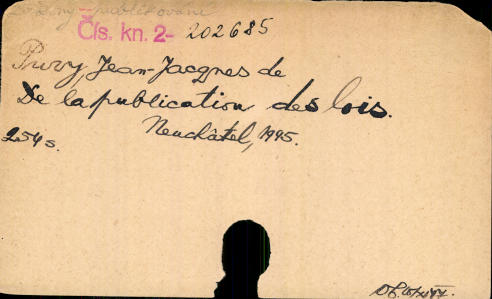 publikování
Čís. kn. 2- 202685
Purry Jean-Jacques de
De la publication des lois.
Neuchâtel, 1995.
254 s.